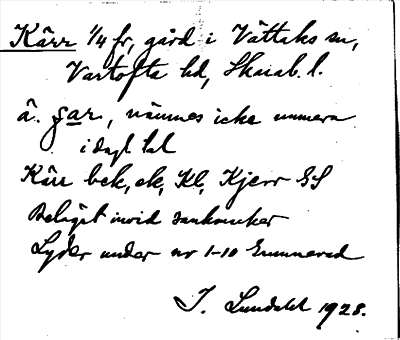 Kärr 1/4 fr, gård i Vättaks sn,
Vartofta hd, Skarab. l.
â. ɕar, nämnes icke numera
i dagl. tal
Kärr bek, ek, Kl, Kjerr GS
Beläget invid sankmarker
Lyder under nr 1-10 Gunnered
J. Lundahl 1928.